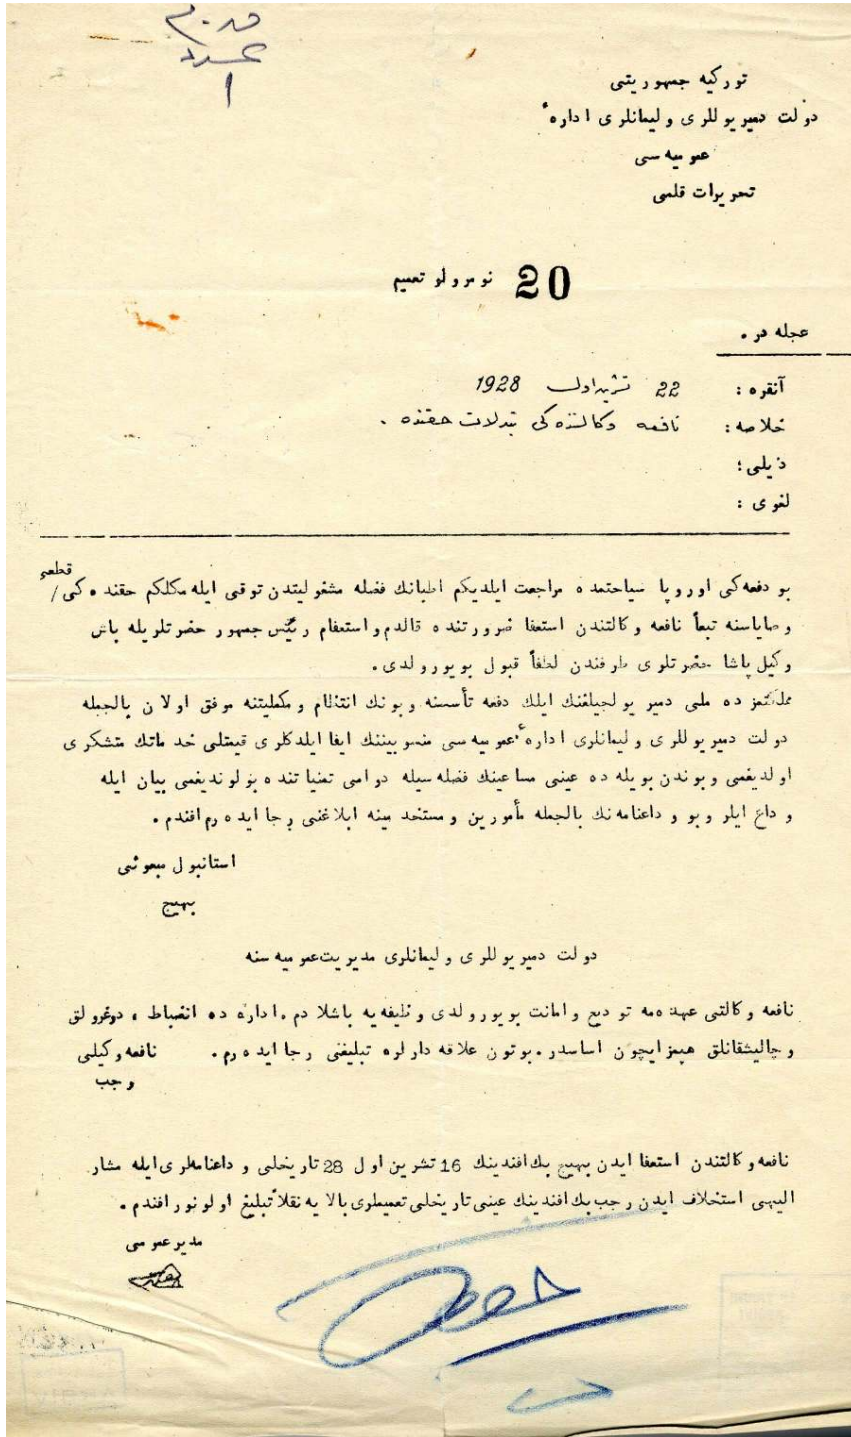 توركیه جمهوریتی
دولت دمیر یوللری و لیمانلری ادارهٔ
عمومیه سی
تحریرات قلمی
20 نومرولو تعمیم
عجله در .
آنقره : 22 تشرین اول 1928
خلاصه : نافعه وكالتنده كی تبدلات حقنده .
ذیلی :
لغوی :
قطعی
بو دفعه كی اوروپا سیاحتمده مراجعت ایلدیكم اطبانك فضله مشغولیتدن توقی ایله مكلكم حقنده كی /
وصایاسنه تبعاً نافعه وكالتندن استعفا ضرورتنده قالدم واستعفام رئیس جمهور حضرتلریله باش
وكیل پاشا حضرتلری طرفندن لطفاً قبول بویورولدی .
مملكتمزده ملی دمیر یولجیلغنك ایلك دفعه تأسسنه و بونك انتظام و مكملیتنه موفق اولان بالجمله
دولت دمیر یوللری و لیمانلری ادارهٔ عمومیه سی منسوبیننك ایفا ایلدكلری قیمتلی خدماتك متشكری
اولدیغمی و بوندن بویله ده عینی مساعینك فضله سیله دوامی تمنیاتنده بولوندیغمی بیان ایله
وداع ایلر و بو وداعنامه نك بالجمله مأمورین و مستخدمینه ابلاغنی رجا ایده رم افندم .
استانبول مبعوثی
بهیج
دولت دمیر یوللری و لیمانلری مدیریت عمومیه سنه
نافعه وكالتی عهده مه تودیع و امانت بویورولدی وظیفه یه باشلادم . اداره ده انضباط ، دوغرولق
و چالیشقانلق هپمز ایچون اساسدر . بوتون علاقه دارلره تبلیغنی رجا ایده رم . نافعه وكیلی
رجب
نافعه وكالتندن استعفا ایدن بهیج بك افندینك 16 تشرین اول 28 تاریخلی وداعنامه لری ایله مشار
الیهی استخلاف ایدن رجب بك افندینك عینی تاریخلی تعمیملری بالایه نقلاً تبلیغ اولونور افندم .
مدیر عمومی